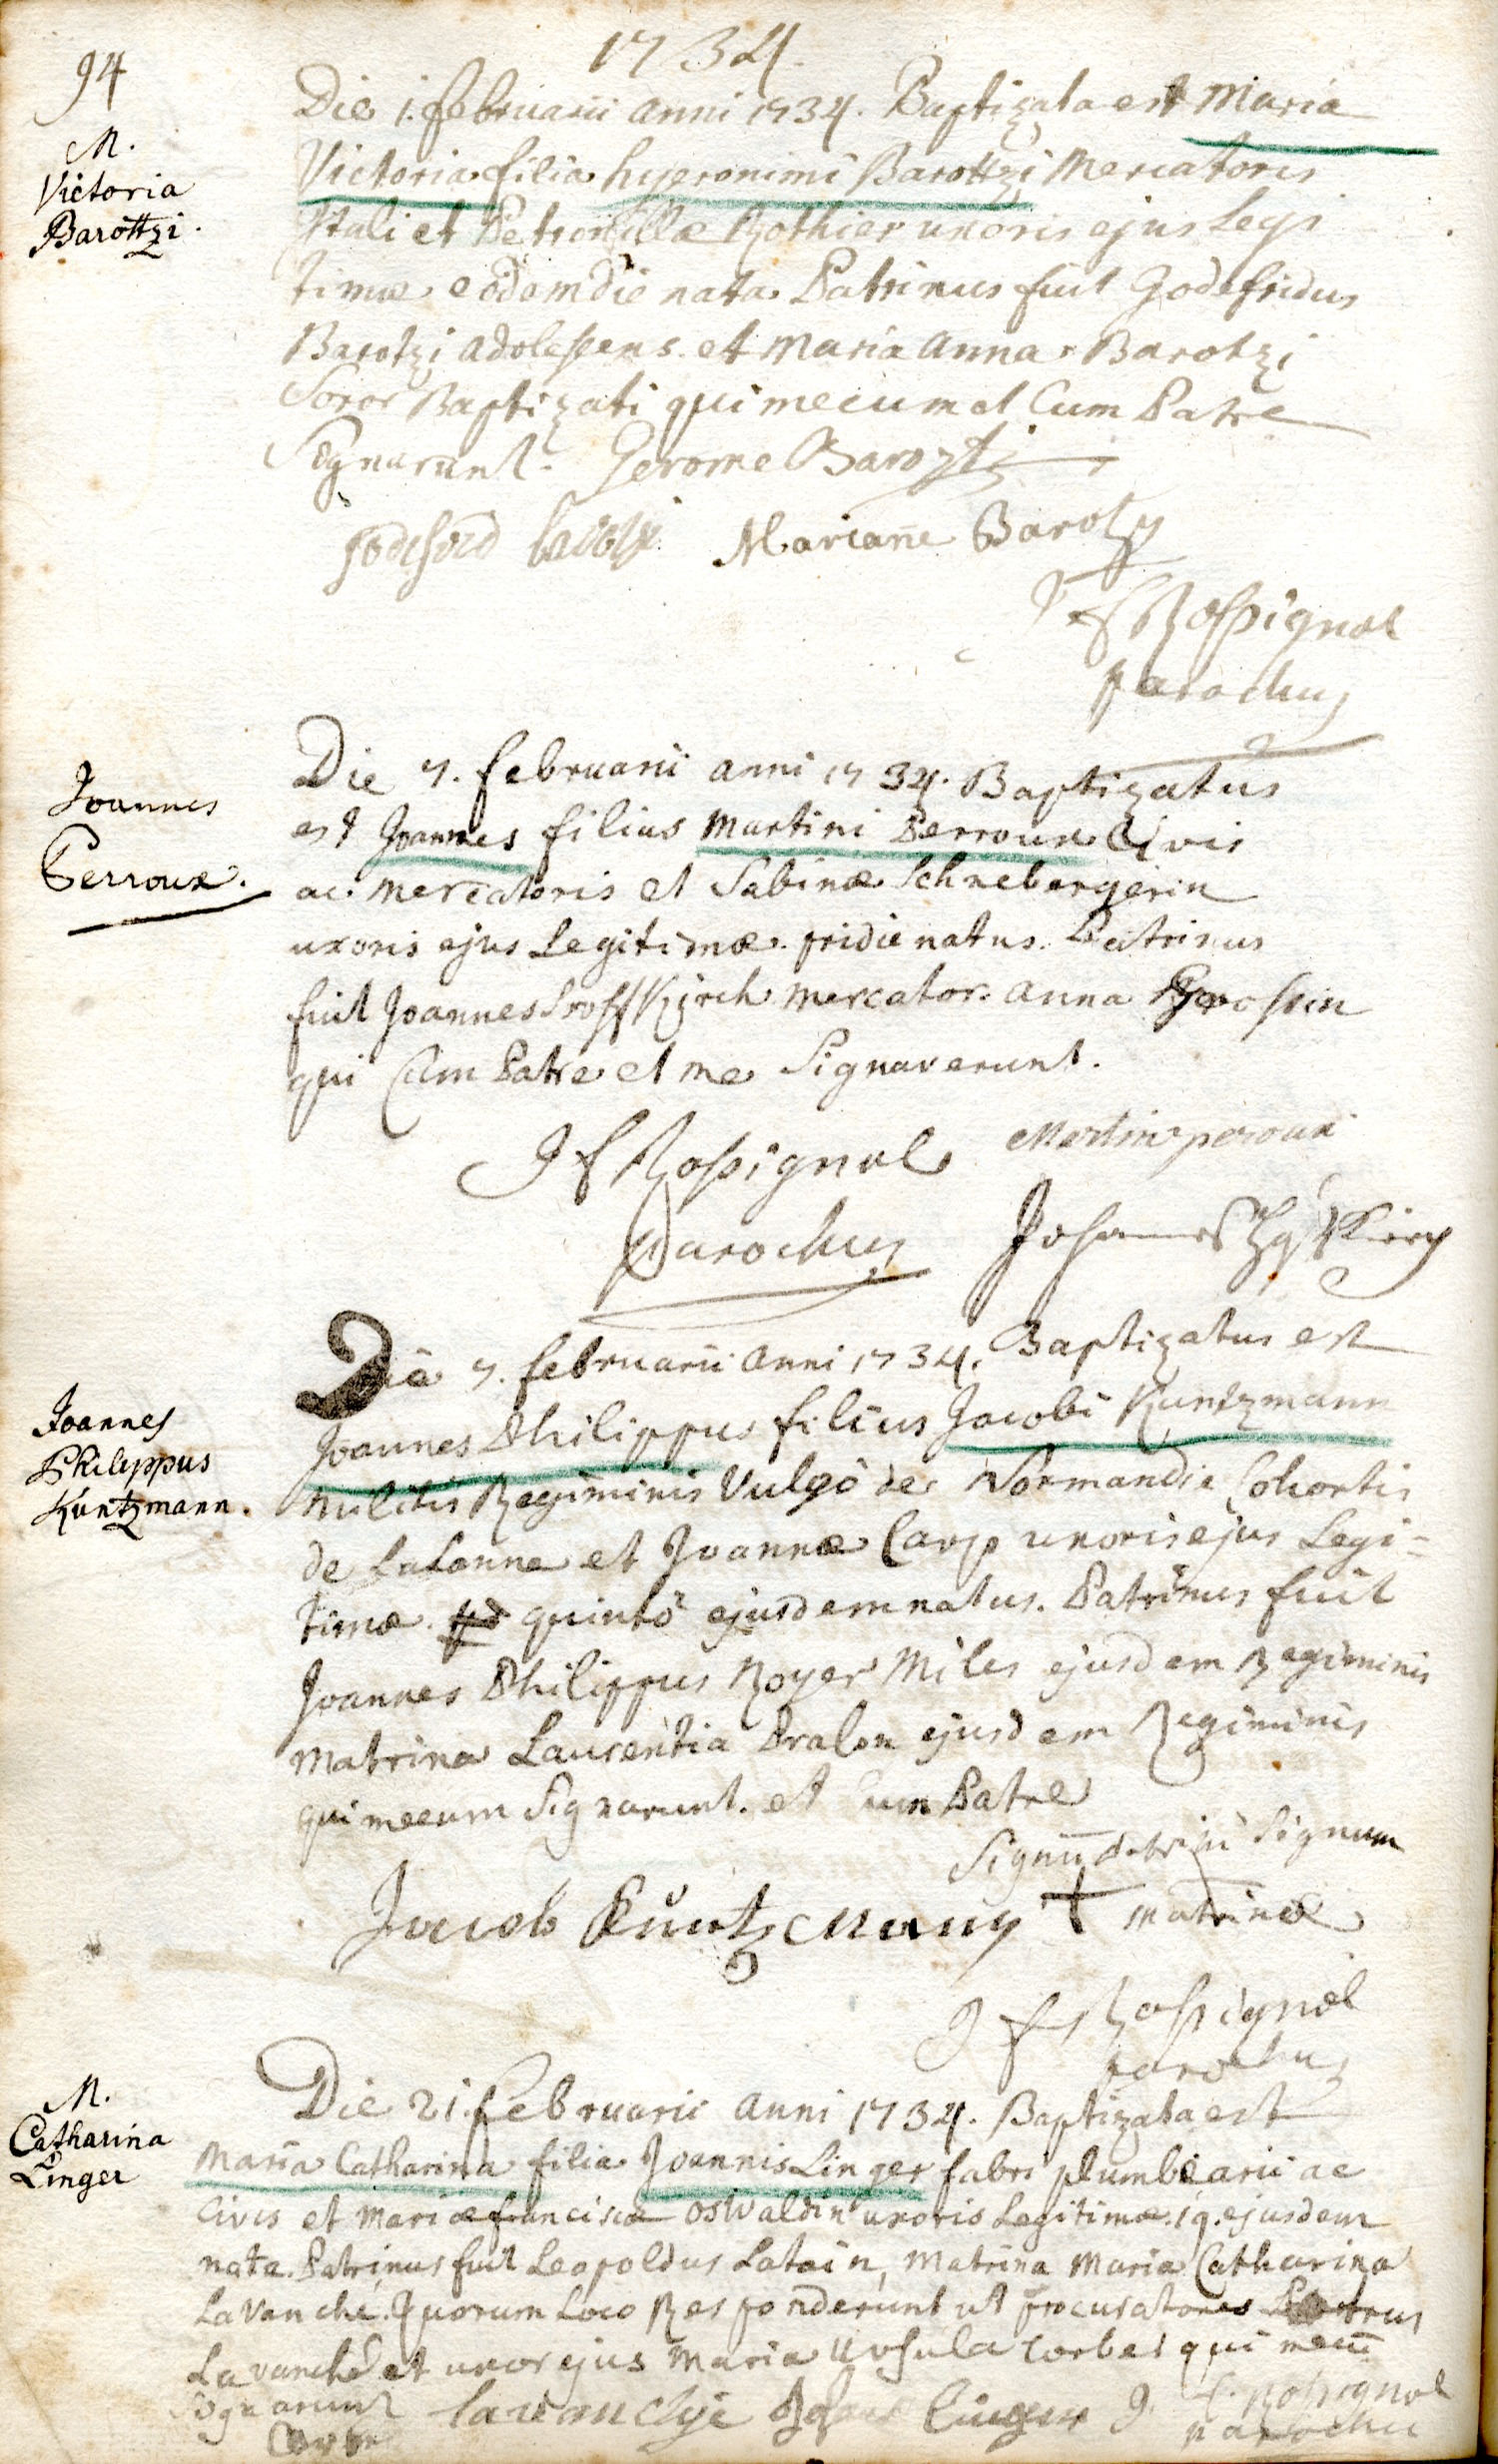 1734.
94
M.
Victoria
Barottzi.
Die 1. februarii anni 1734. Baptizata est Maria
Victoria filia hyeronimi Barottzi Mercatoris
Itali et Petronillæ Rothier uxoris ejus Legi
timæ eodem die nata Patrinus fuit Godefridus
Barotzi adolessens. et Maria Anna Barotzi
Soror Baptizati qui mecum et Cum Patre
Signarunt. Jerome Barozti
Mariane Barotzy
J f Rossignol
parochus
Joannes
Perroux.
Die 7. februarii anni 1734. Baptizatus
est Joannes filius Martini Perroux Civis
ac mercatoris et Sabinæ Schnebergerin
uxoris ejus Legitimæ. pridie natus. Patrinus
fuit Joannes mercator. anna
qui Cum Patre et me Signaverunt.
J f Rossignol Martin peroux
Parochus Johannes
Joannes
Philippus
Kuntzmann.
Die 7. februarii anni 1734. Baptizatus est
Joannes Philippus filius Jacobi Kuntzmann
militis Regiminis Vulgò de Normandie Cohortis
de Lalanne et Joannæ Carp uxoris ejus Legi=
timæ. quintò ejusdem natus. Patrinus fuit
Joannes Philippus Royer Miles ejusdem Regiminis
Matrina Laurentia Bralon ejusdem Regiminis
qui mecum Signarunt. et Cum Patre
Signū Patrini Signum
Jacob Kuntzmann + matrinæ
J f Rossignol
parochus
M.
Catharina
Linger
Die 21. februarii anni 1734. Baptizata est
Maria Catharina filia Joannis Linger fabri plumbearii ac
Civis et Mariæ franciscæ Oswaldin uxoris Legitimæ. 19. ejusdem
nata. Patrinus fuit Leopoldus Latain, Matrina Maria Catharina
Lavanché. Quorum Loco Responderunt ut procuratores Petrus
Lavanché et uxor ejus Maria Ursula Corbet qui mecū
Signarunt lavanchye Linger J. f. Rossignol
parochus